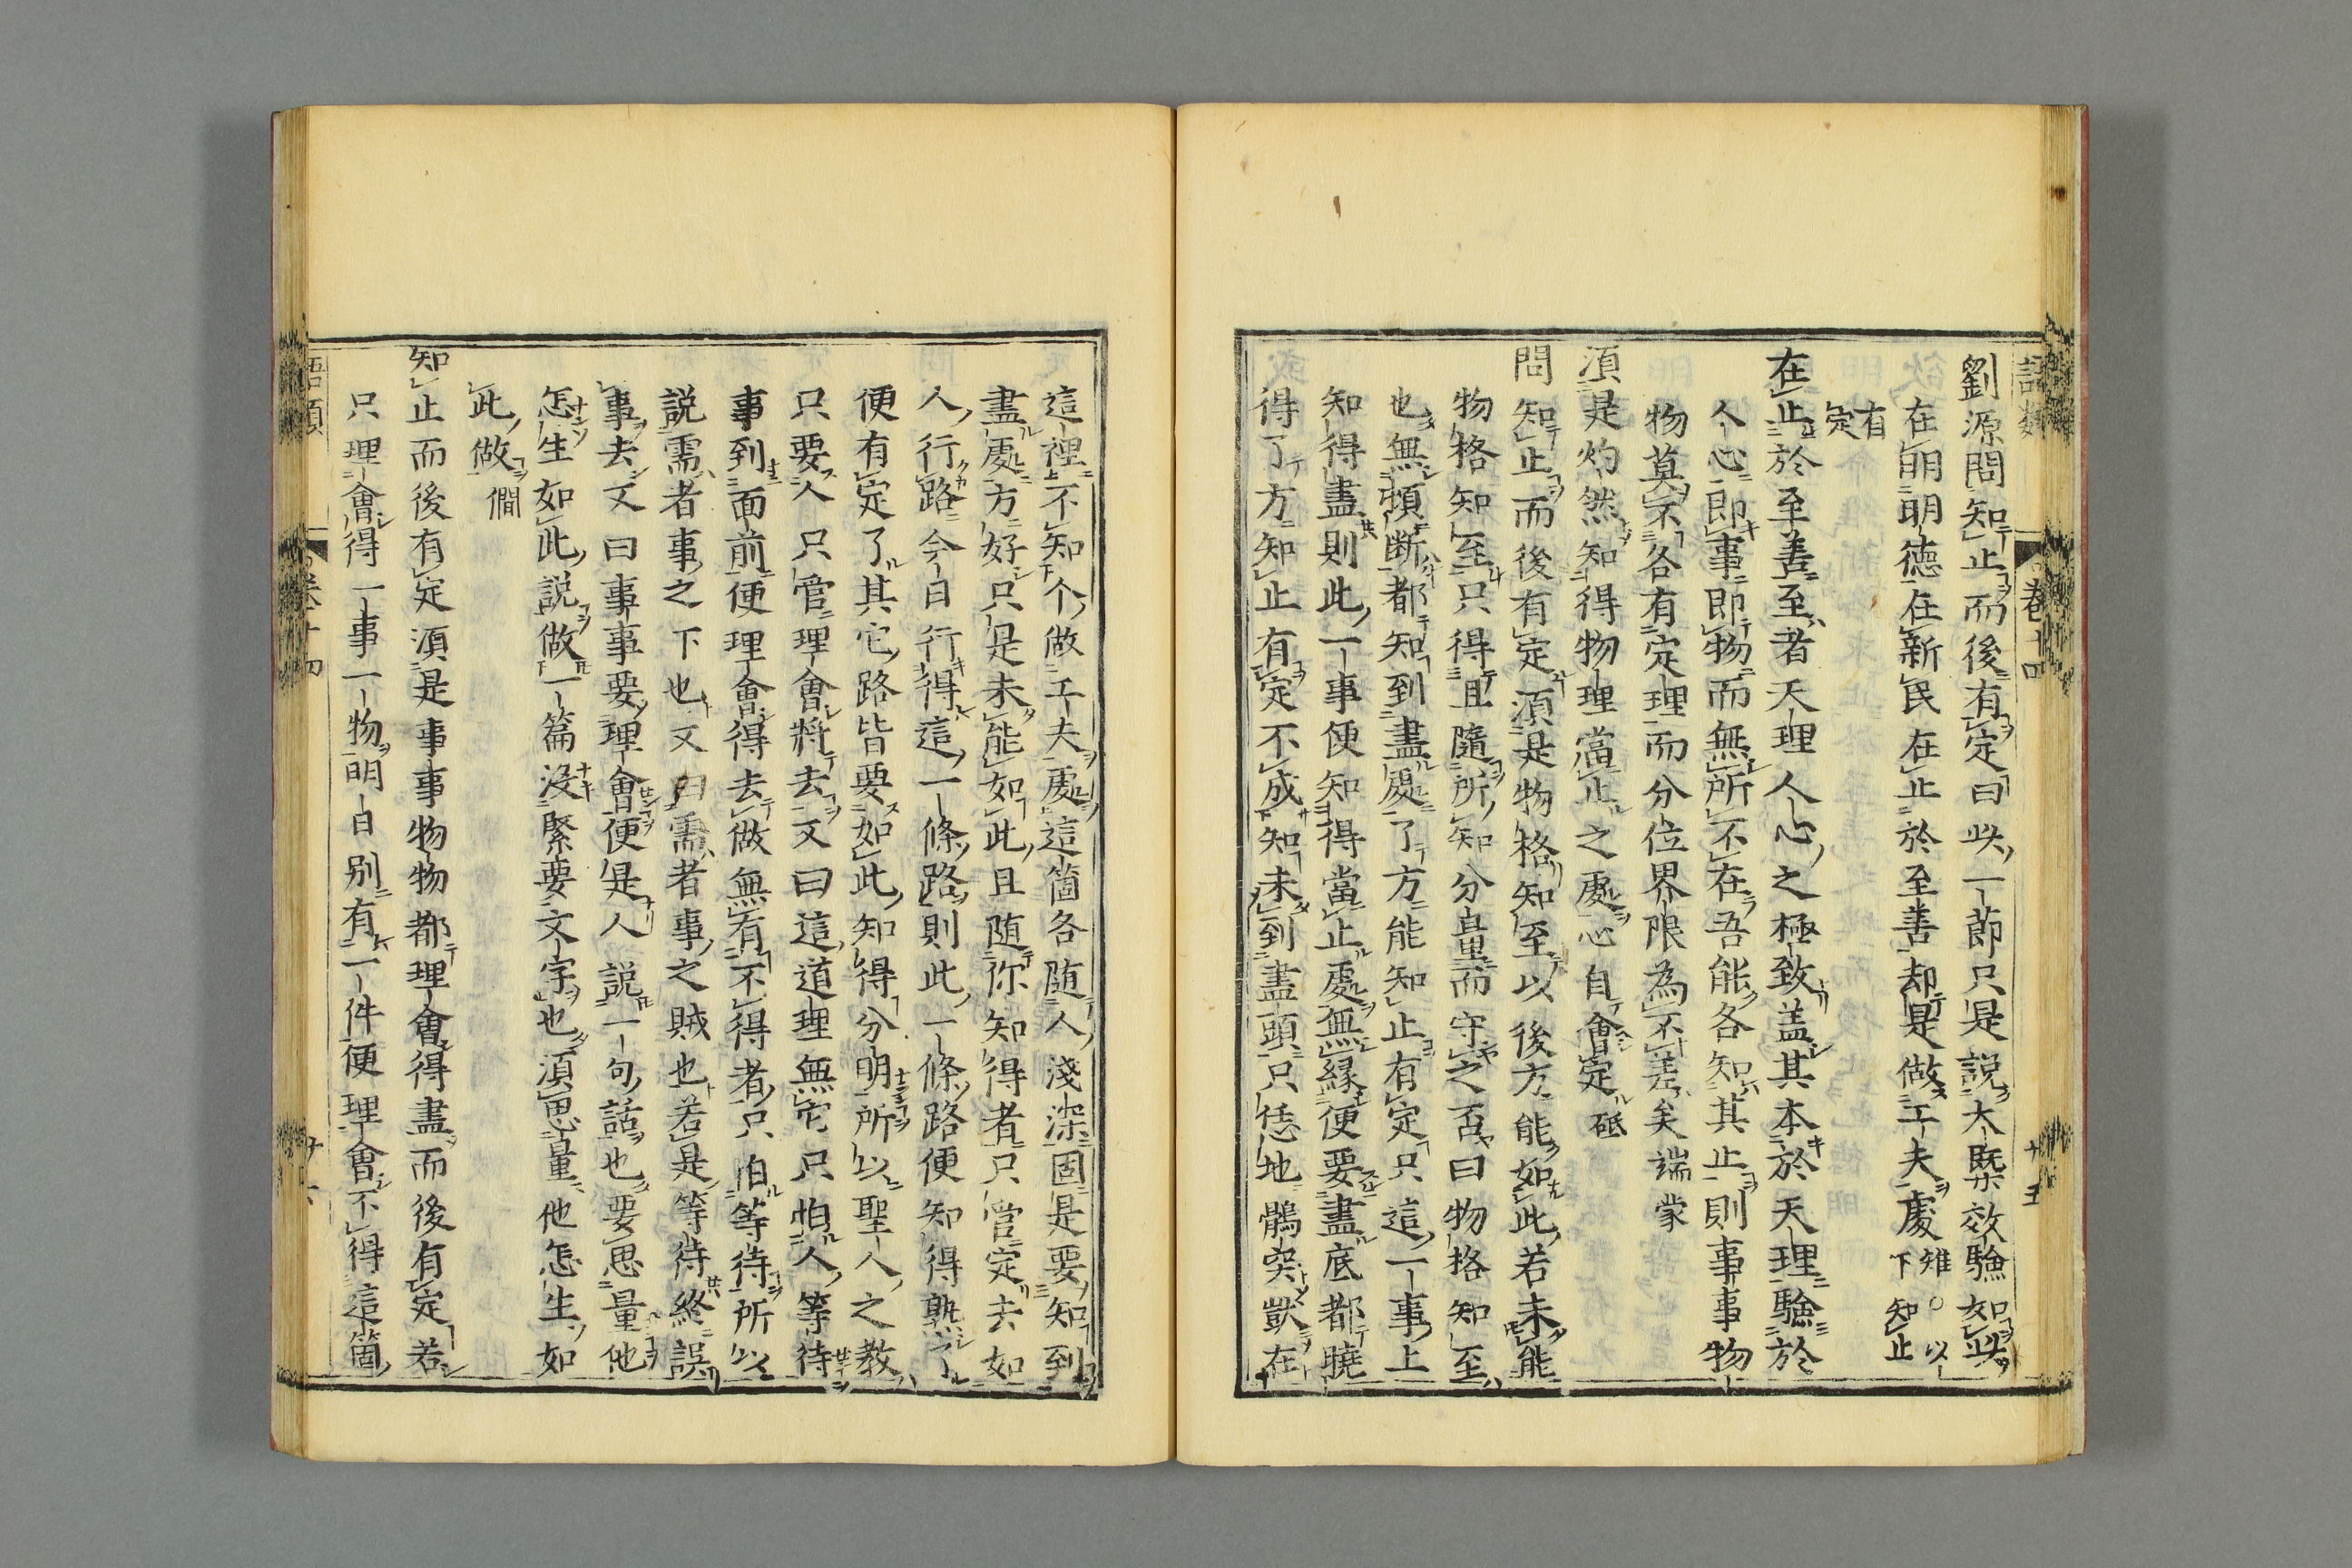 語類 卷十四 廿五
劉源問知止而後有定曰此一節只是説大槩效驗如此
在明明德在新民在止於至善却是做工夫處 雉○以下知止
有定
在止於至善至者天理人心之極致蓋其本於天理驗於
人心即事即物而無所不在吾能各知其止則事事物
物莫不各有定理而分位界限為不差矣端蒙
須是灼然知得物理當止之處心自會定砥
問知止而後有定須是物格知至以後方能如此若未能
物格知至只得且隨所知分量而守之否曰物格知至
也無頓断都知到盡處了方能知止有定只這一事上
知得盡則此一事便知得當止處無縁便要盡底都曉
得了方知止有定不成知未到盡頭只恁地鶻突獃在
這裡不知个做工夫處這箇各随人淺深固是要知到
盡處方好只是未能如此且随你知得者只管定去如
人行路今日行得這一條路則此一條路便知得熟了
便有定了其它路皆要如此知得分明所以聖人之教
只要人只管理會將去又曰這道理無它只怕人等待
事到面前便理會得去做無有不得者只怕等待所以
説需者事之下也又曰需者事之賊也若是等待終誤
事去又曰事事要理會便是人説一句話也要思量他
怎生如此説做一篇没緊要文字也須思量他怎生如
此做 僩
知止而後有定須是事事物物都理會得盡而後有定若
只理會得一事一物明日别有一件便理會不得這箇
語類 卷十四